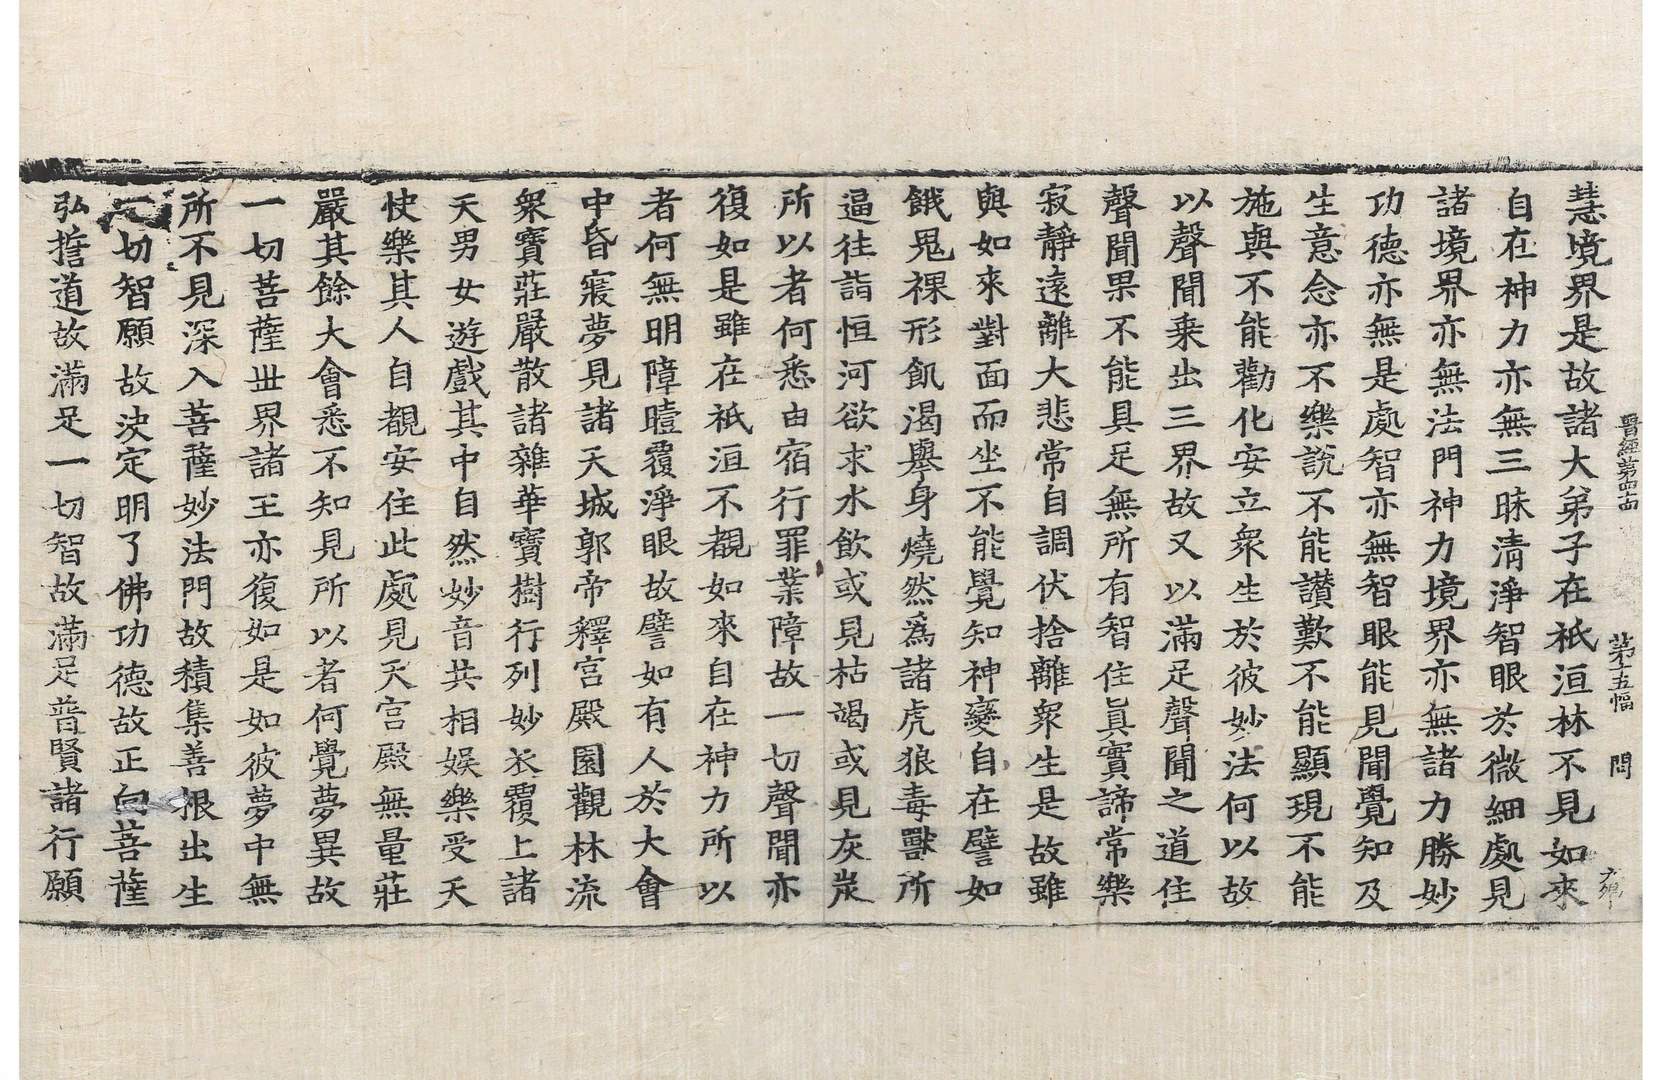 晉經第四十四 第十五幅 問
慧境界是故諸大弟子在祇洹林不見如來
自在神力亦無三昧清淨智眼於微細處見
諸境界亦無法門神力境界亦無諸力勝妙
功德亦無是處智亦無智眼能見聞覺知及
生意念亦不樂說不能讚歎不能顯現不能
施與不能勸化安立衆生於彼妙法何以故
以聲聞乘出三界故又以滿足聲聞之道住
聲聞果不能具足無所有智住眞實諦常樂
寂靜遠離大悲常自調伏捨離衆生是故雖
與如來對面而坐不能覺知神變自在譬如
餓鬼裸形飢渴舉身燒然爲諸虎狼毒獸所
逼往詣恒河欲求水飲或見枯竭或見灰炭
所以者何悉由宿行罪業障故一切聲聞亦
復如是雖在祇洹不覩如來自在神力所以
者何無明障曀覆淨眼故譬如有人於大會
中昏寢夢見諸天城郭帝釋宮殿園觀林流
衆寶莊嚴散諸雜華寶樹行列妙衣覆上諸
天男女遊戲其中自然妙音共相娛樂受天
快樂其人自覩安住此處見天宮殿無量莊
嚴其餘大會悉不知見所以者何覺夢異故
一切菩薩世界諸王亦復如是如彼夢中無
所不見深入菩薩妙法門故積集善根出生
一切智願故決定明了佛功德故正向菩薩
弘擔道故滿足一切智故滿足普賢諸行願